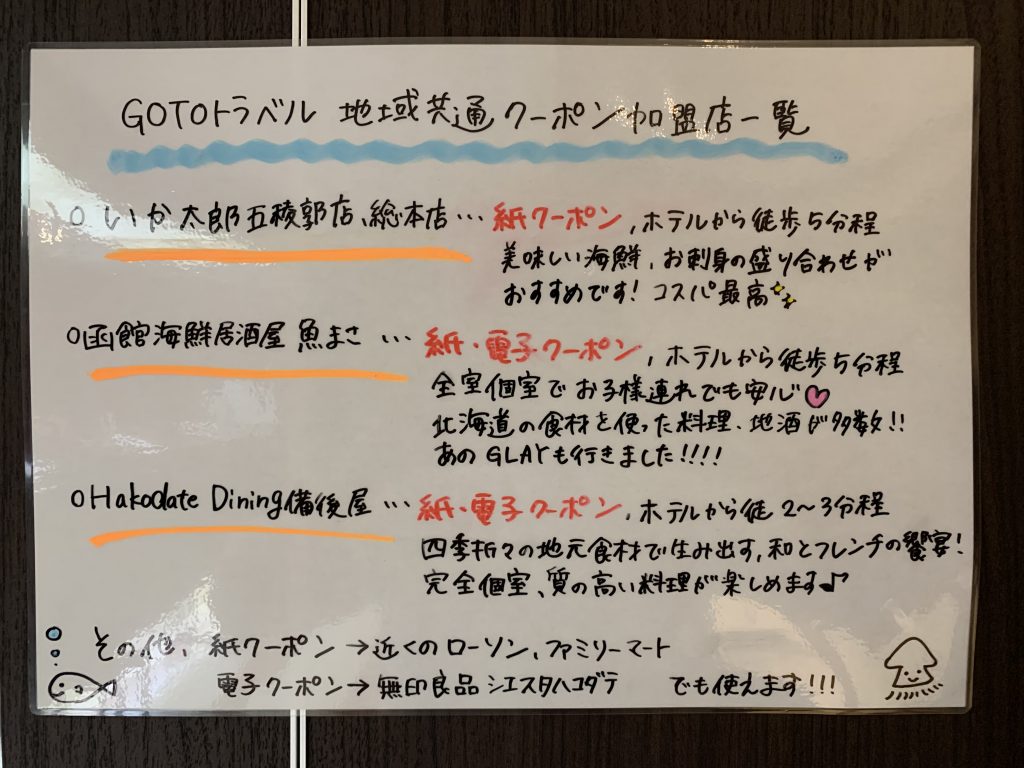 GOTOトラベル 地域共通クーポン加盟店一覧
○いか太郎五稜郭店、総本店… 紙クーポン, ホテルから徒歩5分程
美味しい海鮮、お刺身の盛り合わせが
おすすめです! コスパ最高
○函館海鮮居酒屋 魚まさ … 紙・電子クーポン, ホテルから徒歩5分程
全室個室でお子様連れでも安心
北海道の食材を使った料理、地酒が多数!!
あのGLAYも行きました!!!!
○Hakodate Dining備後屋 … 紙・電子クーポン, ホテルから徒2〜3分程
四季折々の地元食材で生み出す,和とフレンチの饗宴!
完全個室、質の高い料理が楽しめます♪
その他、紙クーポン→近くのローソン、ファミリーマート
電子クーポン→無印良品シエスタハコダテ でも使えます!!!